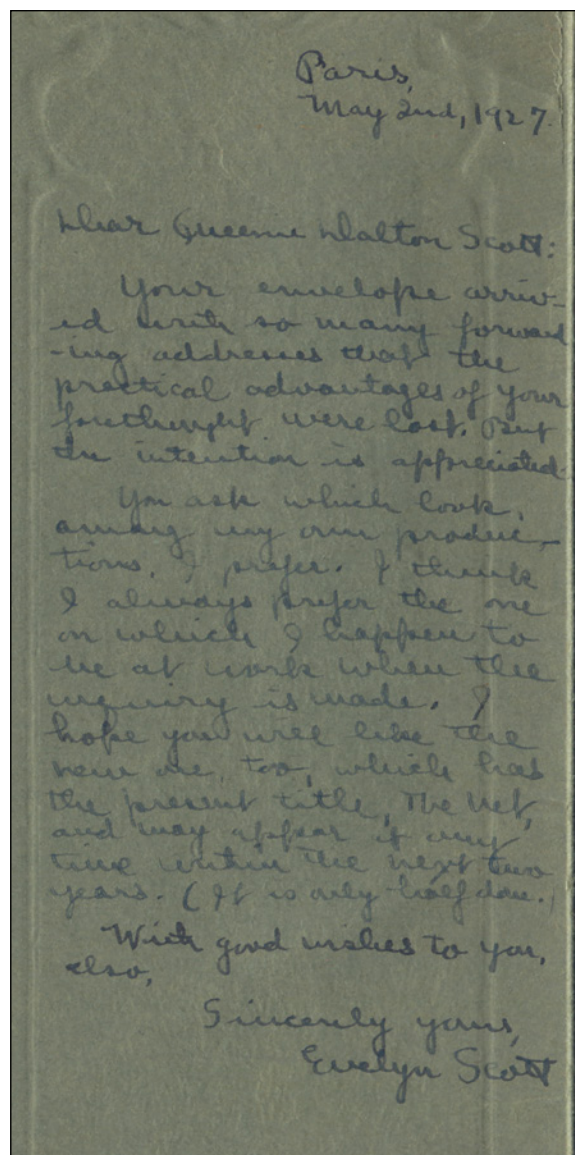 Paris,
May 2nd, 1927.
Dear Queenie Dalton Scott:
Your envelope arriv-
ed with so many forward
-ing addresses that the
practical advantages of your
forethought were lost. But
the intention is appreciated.
You ask which book,
among my own produc-
tions, I prefer. I think
I always prefer the one
on which I happen to
be at work when the
inquiry is made. I
hope you will like the
new one, too, which has
the present title, The Net,
and may appear at any
time within the next two
years. (It is only half done.)
With good wishes to you,
also,
Sincerely yours,
Evelyn Scott